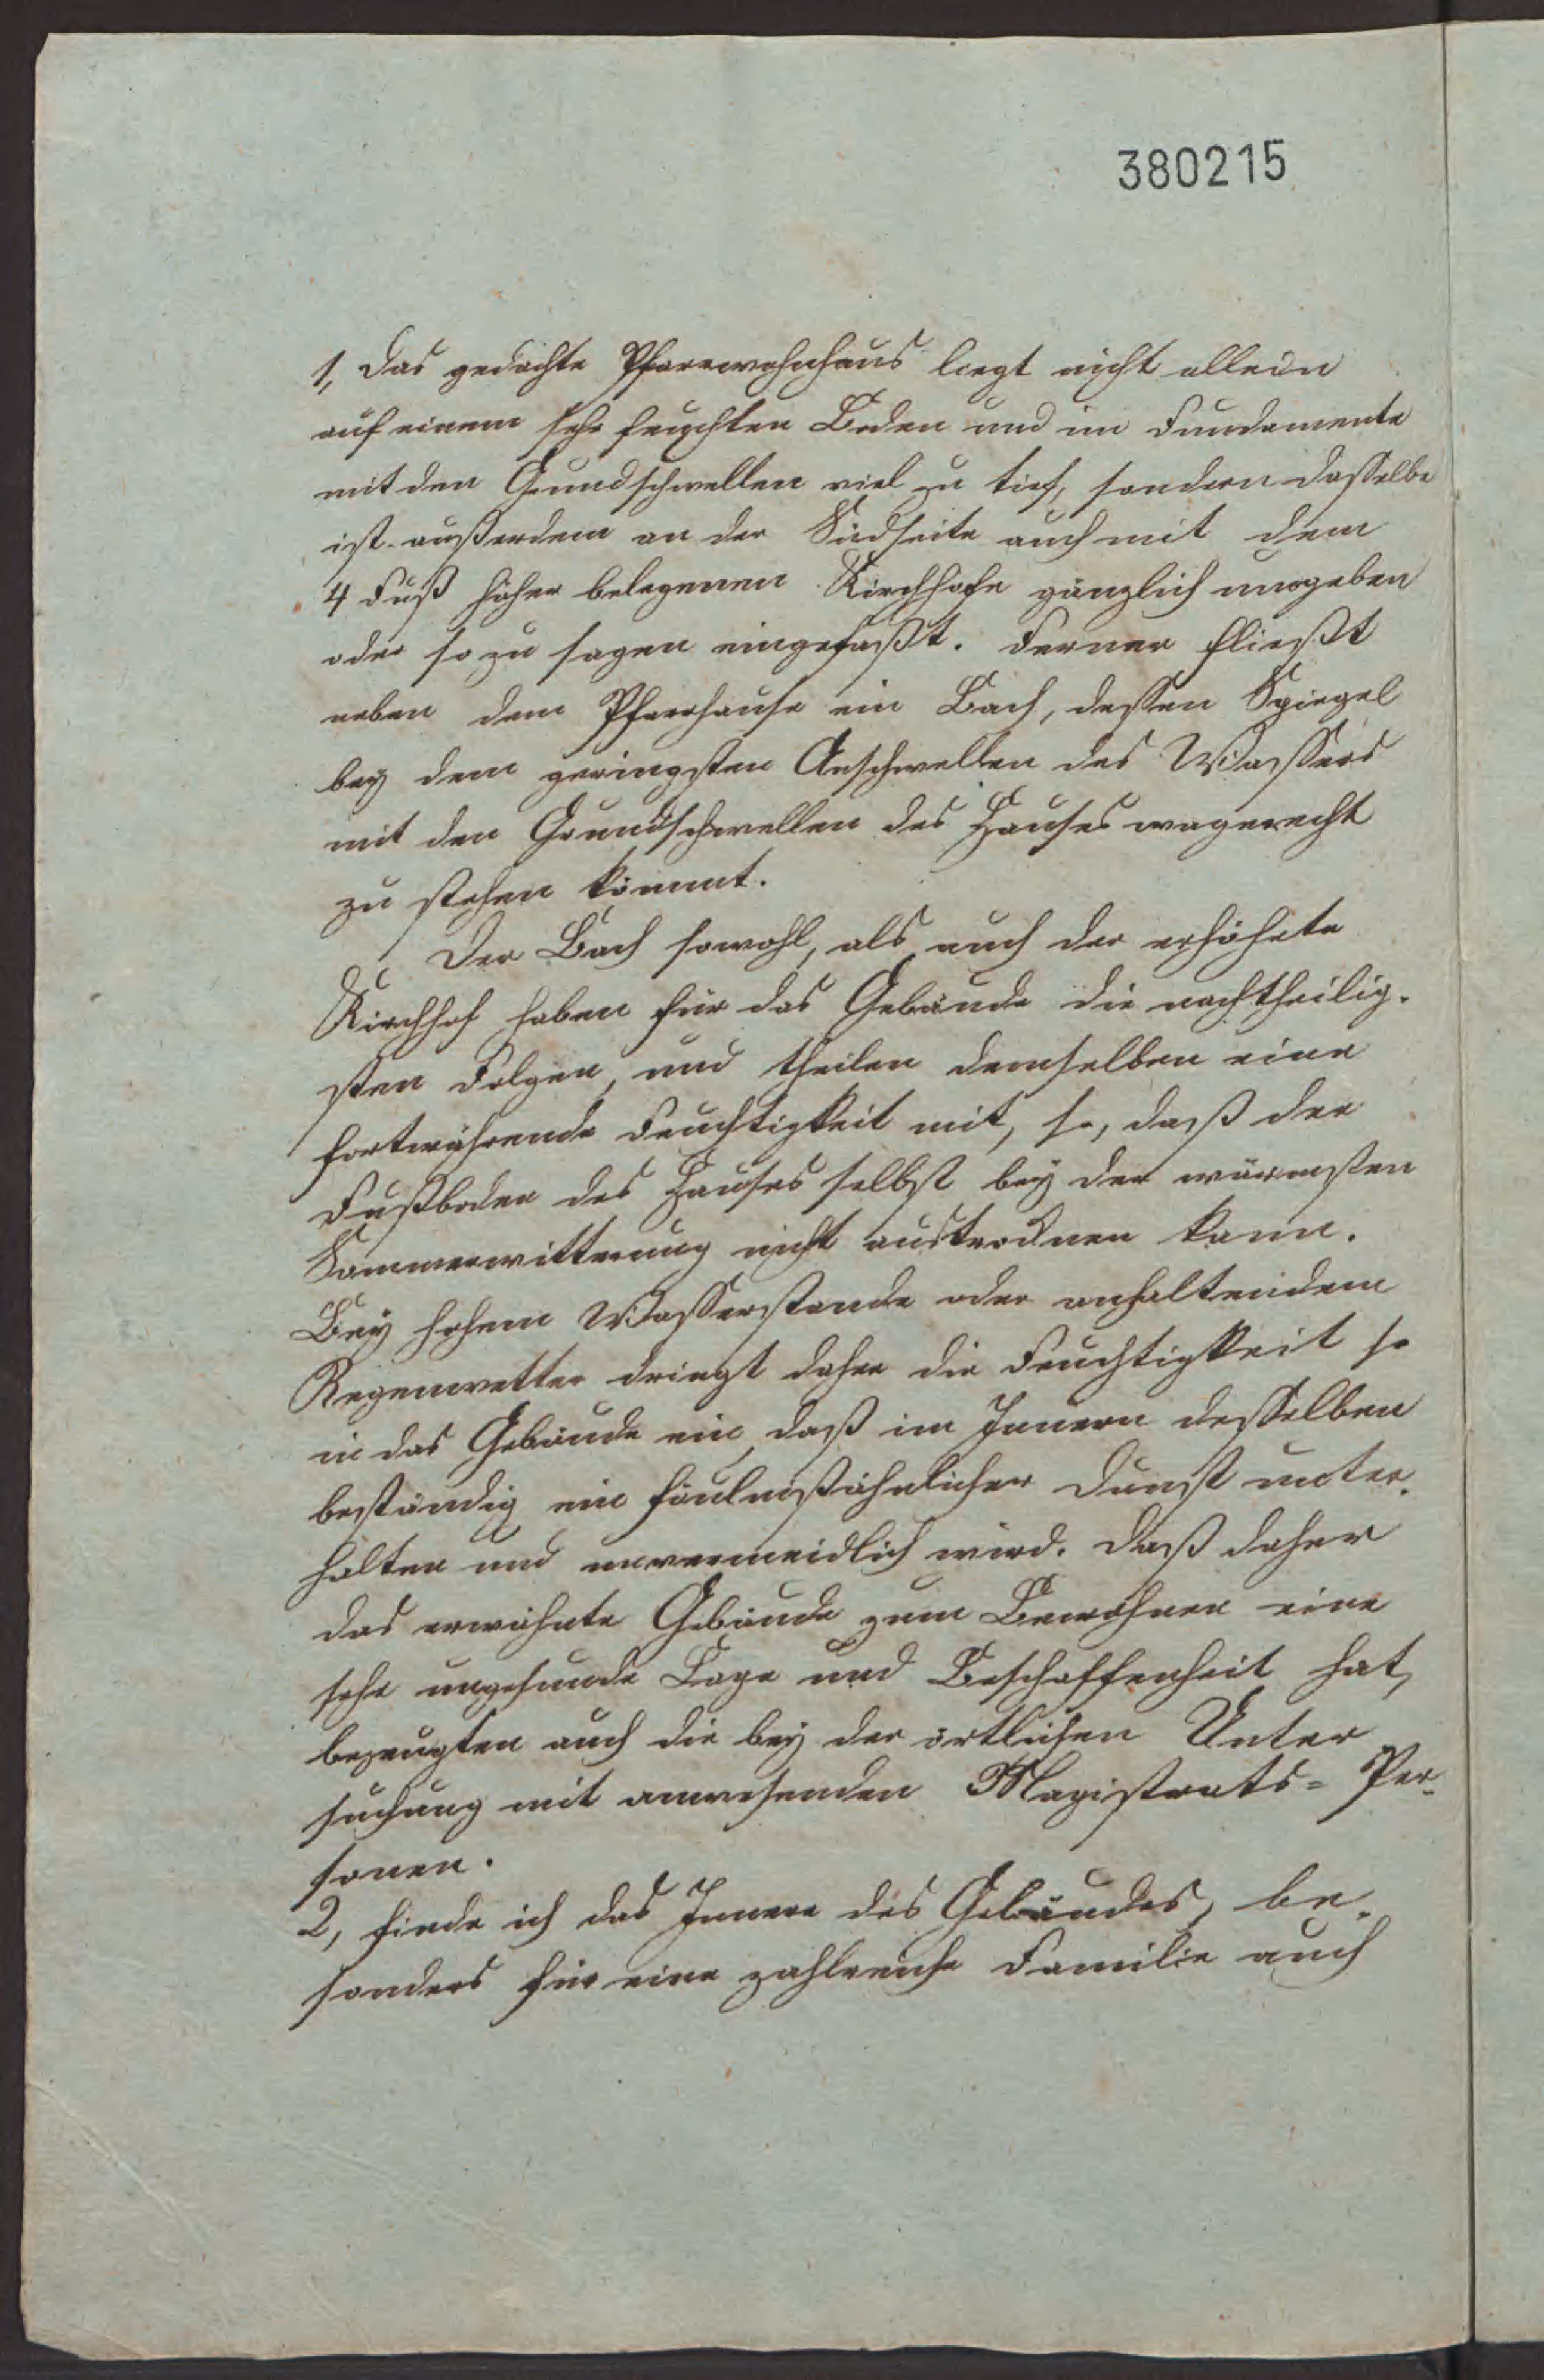 380215
1, das gedachte Pfarrwohnhaus liegt nicht allein
auf einem sehr feuchten Boden und im Fundamente
mit den Grundschwellen viel zu tief, sondern dasselbe
ist außerdem an der Südseite auch mit dem
4 Fuß höher belegenen Kirchhofe gänzlich umgeben
oder so zu sagen eingefaßt. Ferner fließt
neben dem Pfarrhause ein Bach, dessen Spiegel
bey dem geringsten Anschwellen des Wassers
mit den Grundschwellen des Hauses wagerecht
zu stehen kömmt.
Der Bach sowohl, als auch der erhöhete
Kirchhof haben für das Gebäude die nachtheilig-
sten Folgen, und theilen demselben eine
fortwährende Feuchtigkeit mit, so, daß der
Fußboden des Hauses selbst bey der wärmsten
Sommerwitterung nicht austrocknen kann.
Bey hohem Wasserstande oder anhaltendem
Regenwetter dringt daher die Feuchtigkeit so
in das Gebäude ein, daß im Innern desselben
beständig ein fäulnißähnlicher Dunst unter-
halten und unvermeidlich wird. Daß daher
das erwähnte Gebäude zum Bewohnen eine
sehr ungesunde Lage und Beschaffenheit hat,
bezeugten auch die bey der örtlichen Unter
suchung mit anwesenden Magistrats= Per-
sonen.
2, finde ich das Innere des Gebäudes, be-
sonders für eine zahlreiche Familie auch